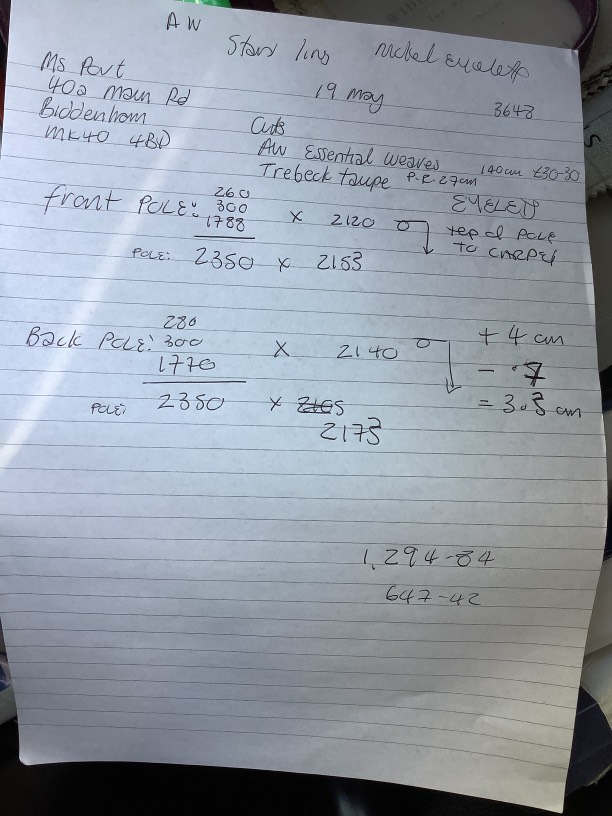 AW
Stan lins nickel eyelets
Ms Pout
40a Main Rd 19 may 3648
Biddenham Cuts
MK40 4BD AW Essential weaves 140cm £30-30
Trebeck taupe P.R. 27cm
EYELETS
260
front POLE: 300
1788 X 2120 top of pole
to carpet
POLE: 2350 X 2153
280
Back POLE: 300 X 2140 + 4 cm
1770 - .7
= 3.3 cm
POLE: 2350 X 2165
2173
1,294-84
647-42